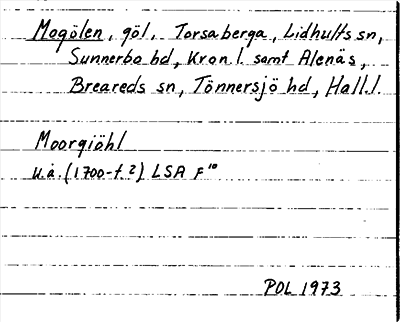 Mogölen, göl, Torsaberga, Lidhults sn,
Sunnerbo hd, Kron l. samt Alenäs,
Breareds sn, Tönnersjö hd, Hall.l.
Moorgiöhl
u.å. (1700-t.?) LSA F¹⁰
POL 1973